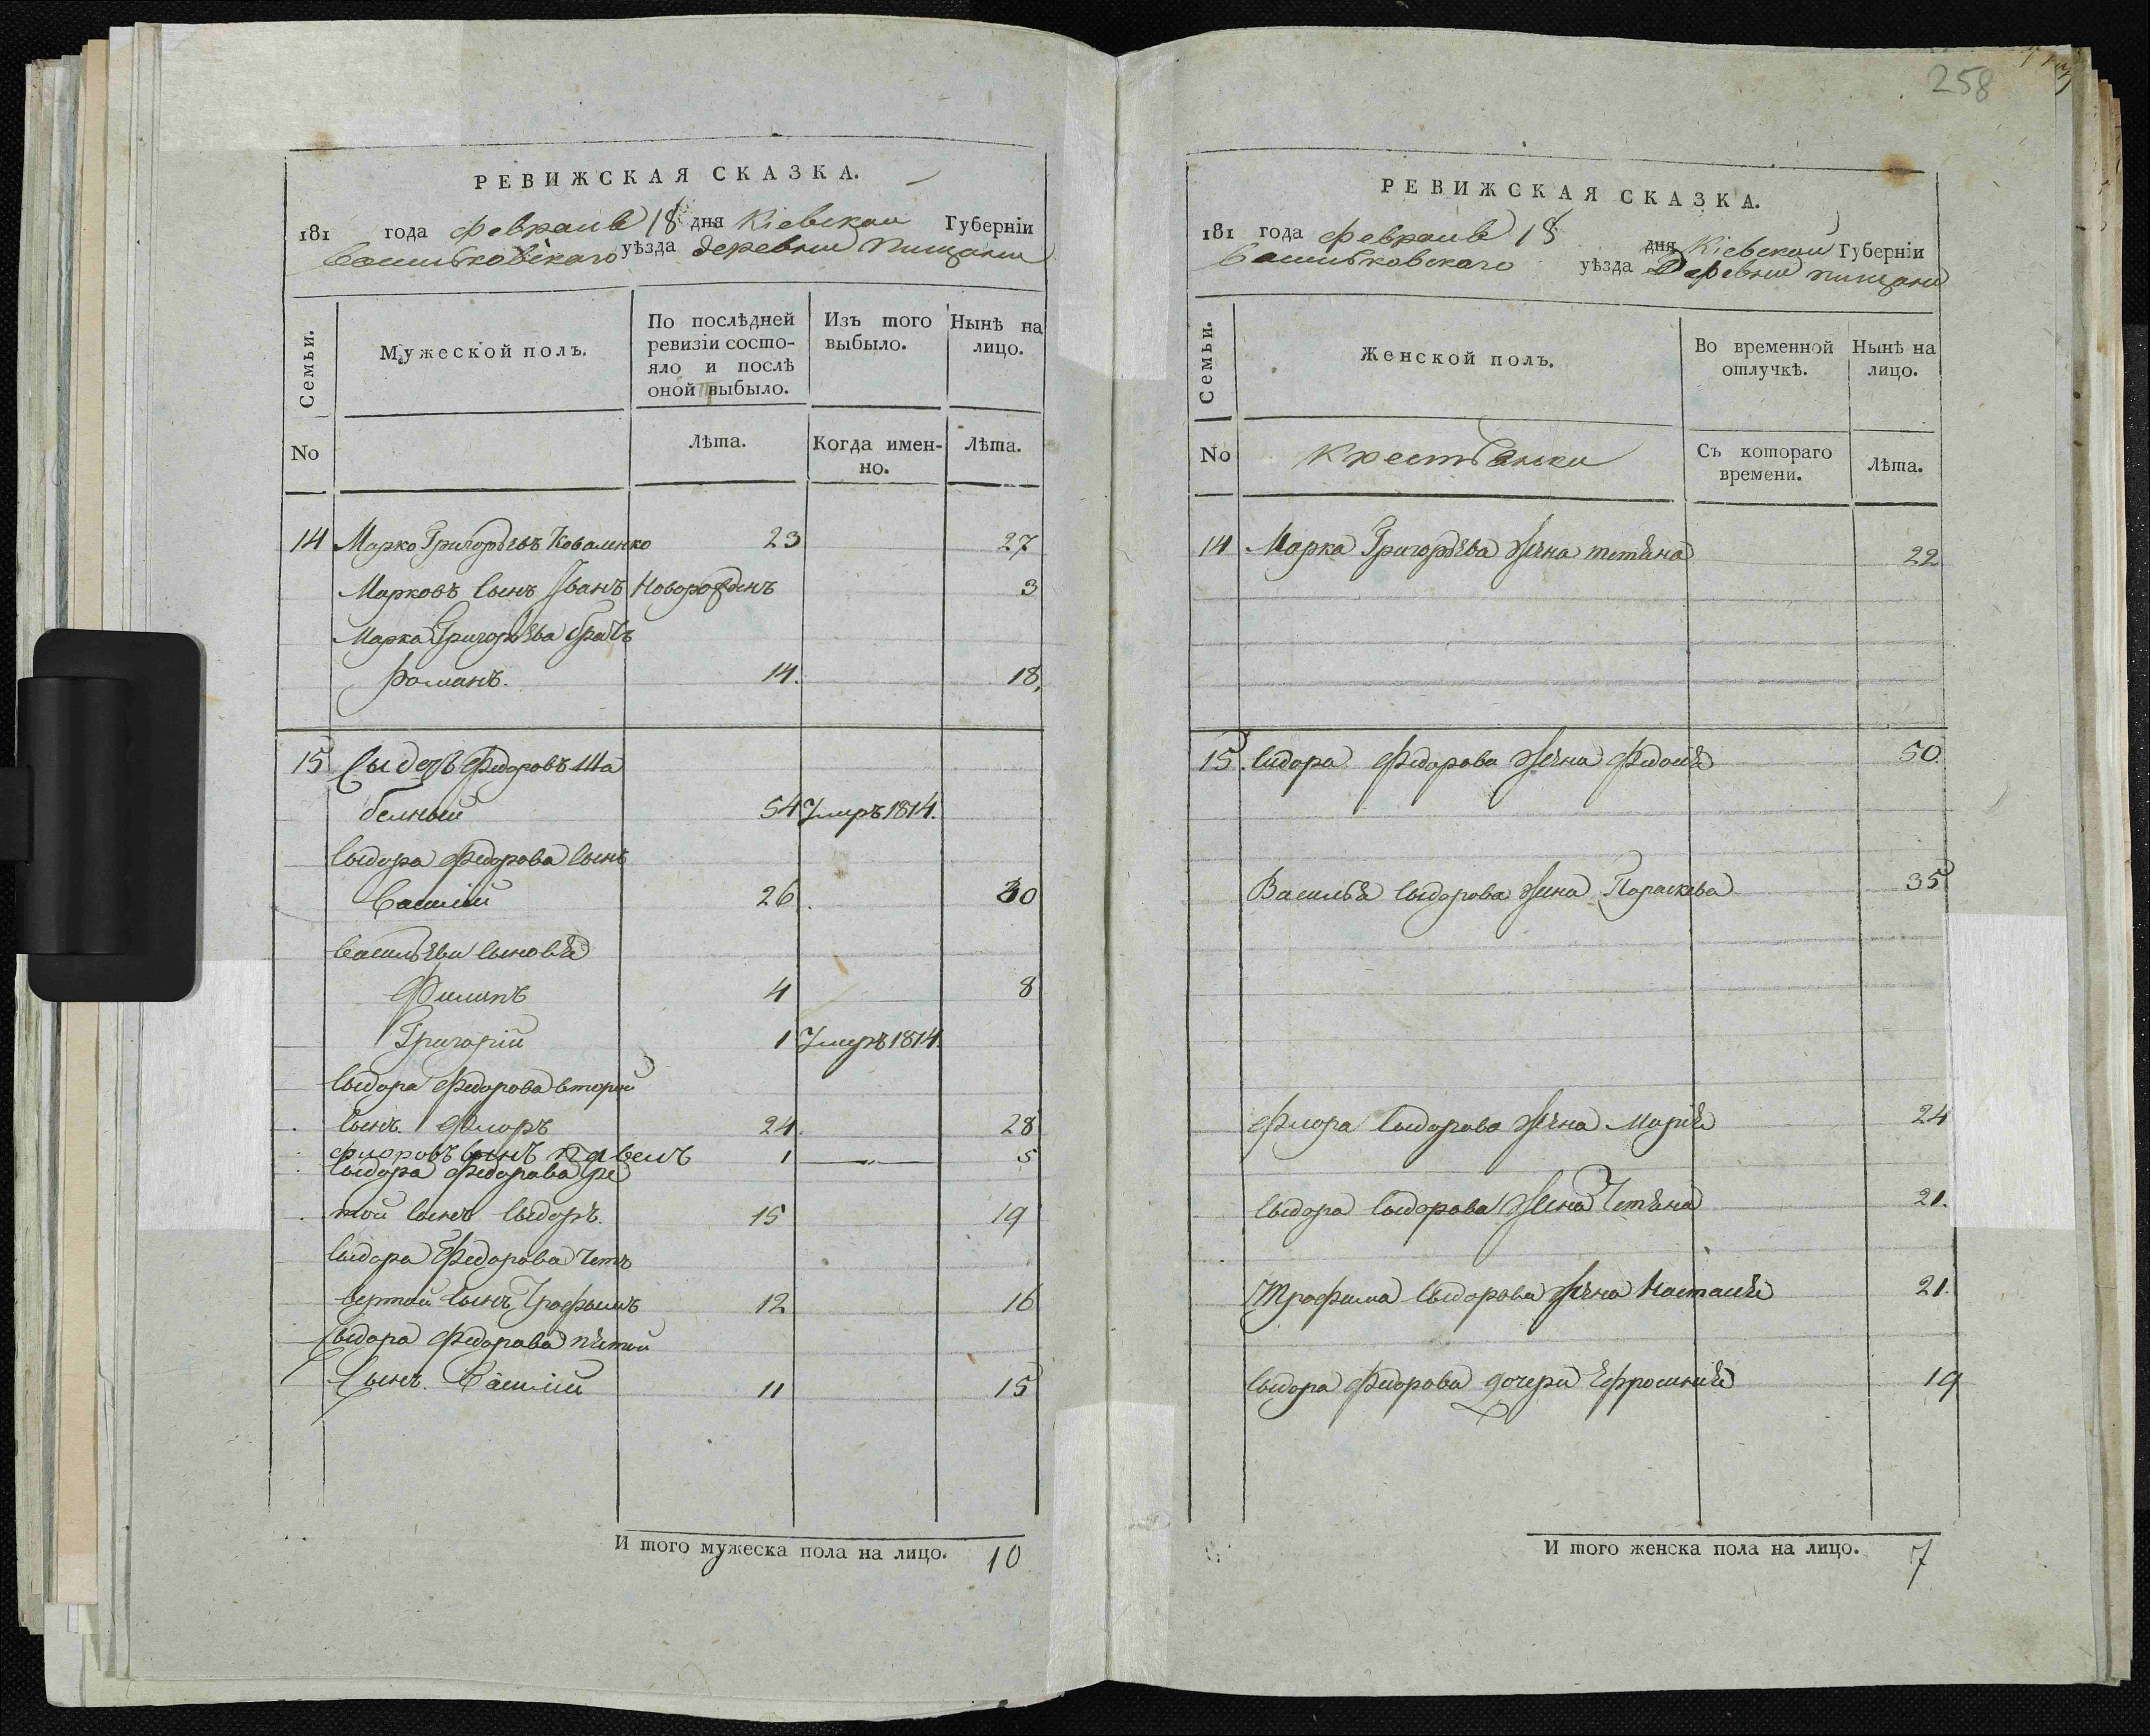 258
РЕВИЖСКАЯ СКАЗКА.
181 года февраля 18 дня Кіевской Губерніи
Васильковскаго уѣзда деревни Пищани
Семьи.
Мужеской полъ.
По послѣдней ревизіи состо-
яло и послѣ
оной выбыло.
Изъ того
выбыло.
Нынѣ на
лицо.
No
Лѣта.
Когда имен-
но.
Лѣта.
14 Марко Григорьевъ Коваленко 23 27
Марковъ сынъ Іванъ Новорожденъ 3
Марка Григорьева братъ
Романъ. 14. 18.
15 Сыдоръ Федоровъ Ша
белный 54 Умръ 1814.
Сыдора Федорова сынъ
Василій 26. 30
Васильеви сыновя
Филипъ 4 8
Григорій 1 Умръ 1814.
Сыдора Федорова вторый
сынъ Флоръ 24. 28
Флоровъ сынъ Павелъ 1 5
Сыдора Федорова тре
той сынъ Сыдоръ. 15 19
Сыдора Федорова чет
вертой сынъ Трофымъ 12 16
Сыдора Федорова пятой
сынъ Василій 11 15
И того мужеска пола на лицо. 10
РЕВИЖСКАЯ СКАЗКА.
181 года февраля 18 дня Кіевской Губерніи
Васильковскаго уѣзда Деревни Пищани
Семьи.
Женской полъ.
Во временной
отлучкѣ.
Нынѣ на
лицо.
No
Крестьянки
Съ котораго
времени.
Лѣта.
14 Марка Григорьева жена Тетяна 22
15. Сидора Федорова жена Федосия 50.
Василья Сыдорова жена Параскева 35
Флора Сыдорова жена Мария 24
Сыдора Сыдорова жена Тетяна 21.
Трофима Сыдорова жена Настасия 21.
Сыдора Федорова дочери Ефросиния 19
И того женска пола на лицо. 7